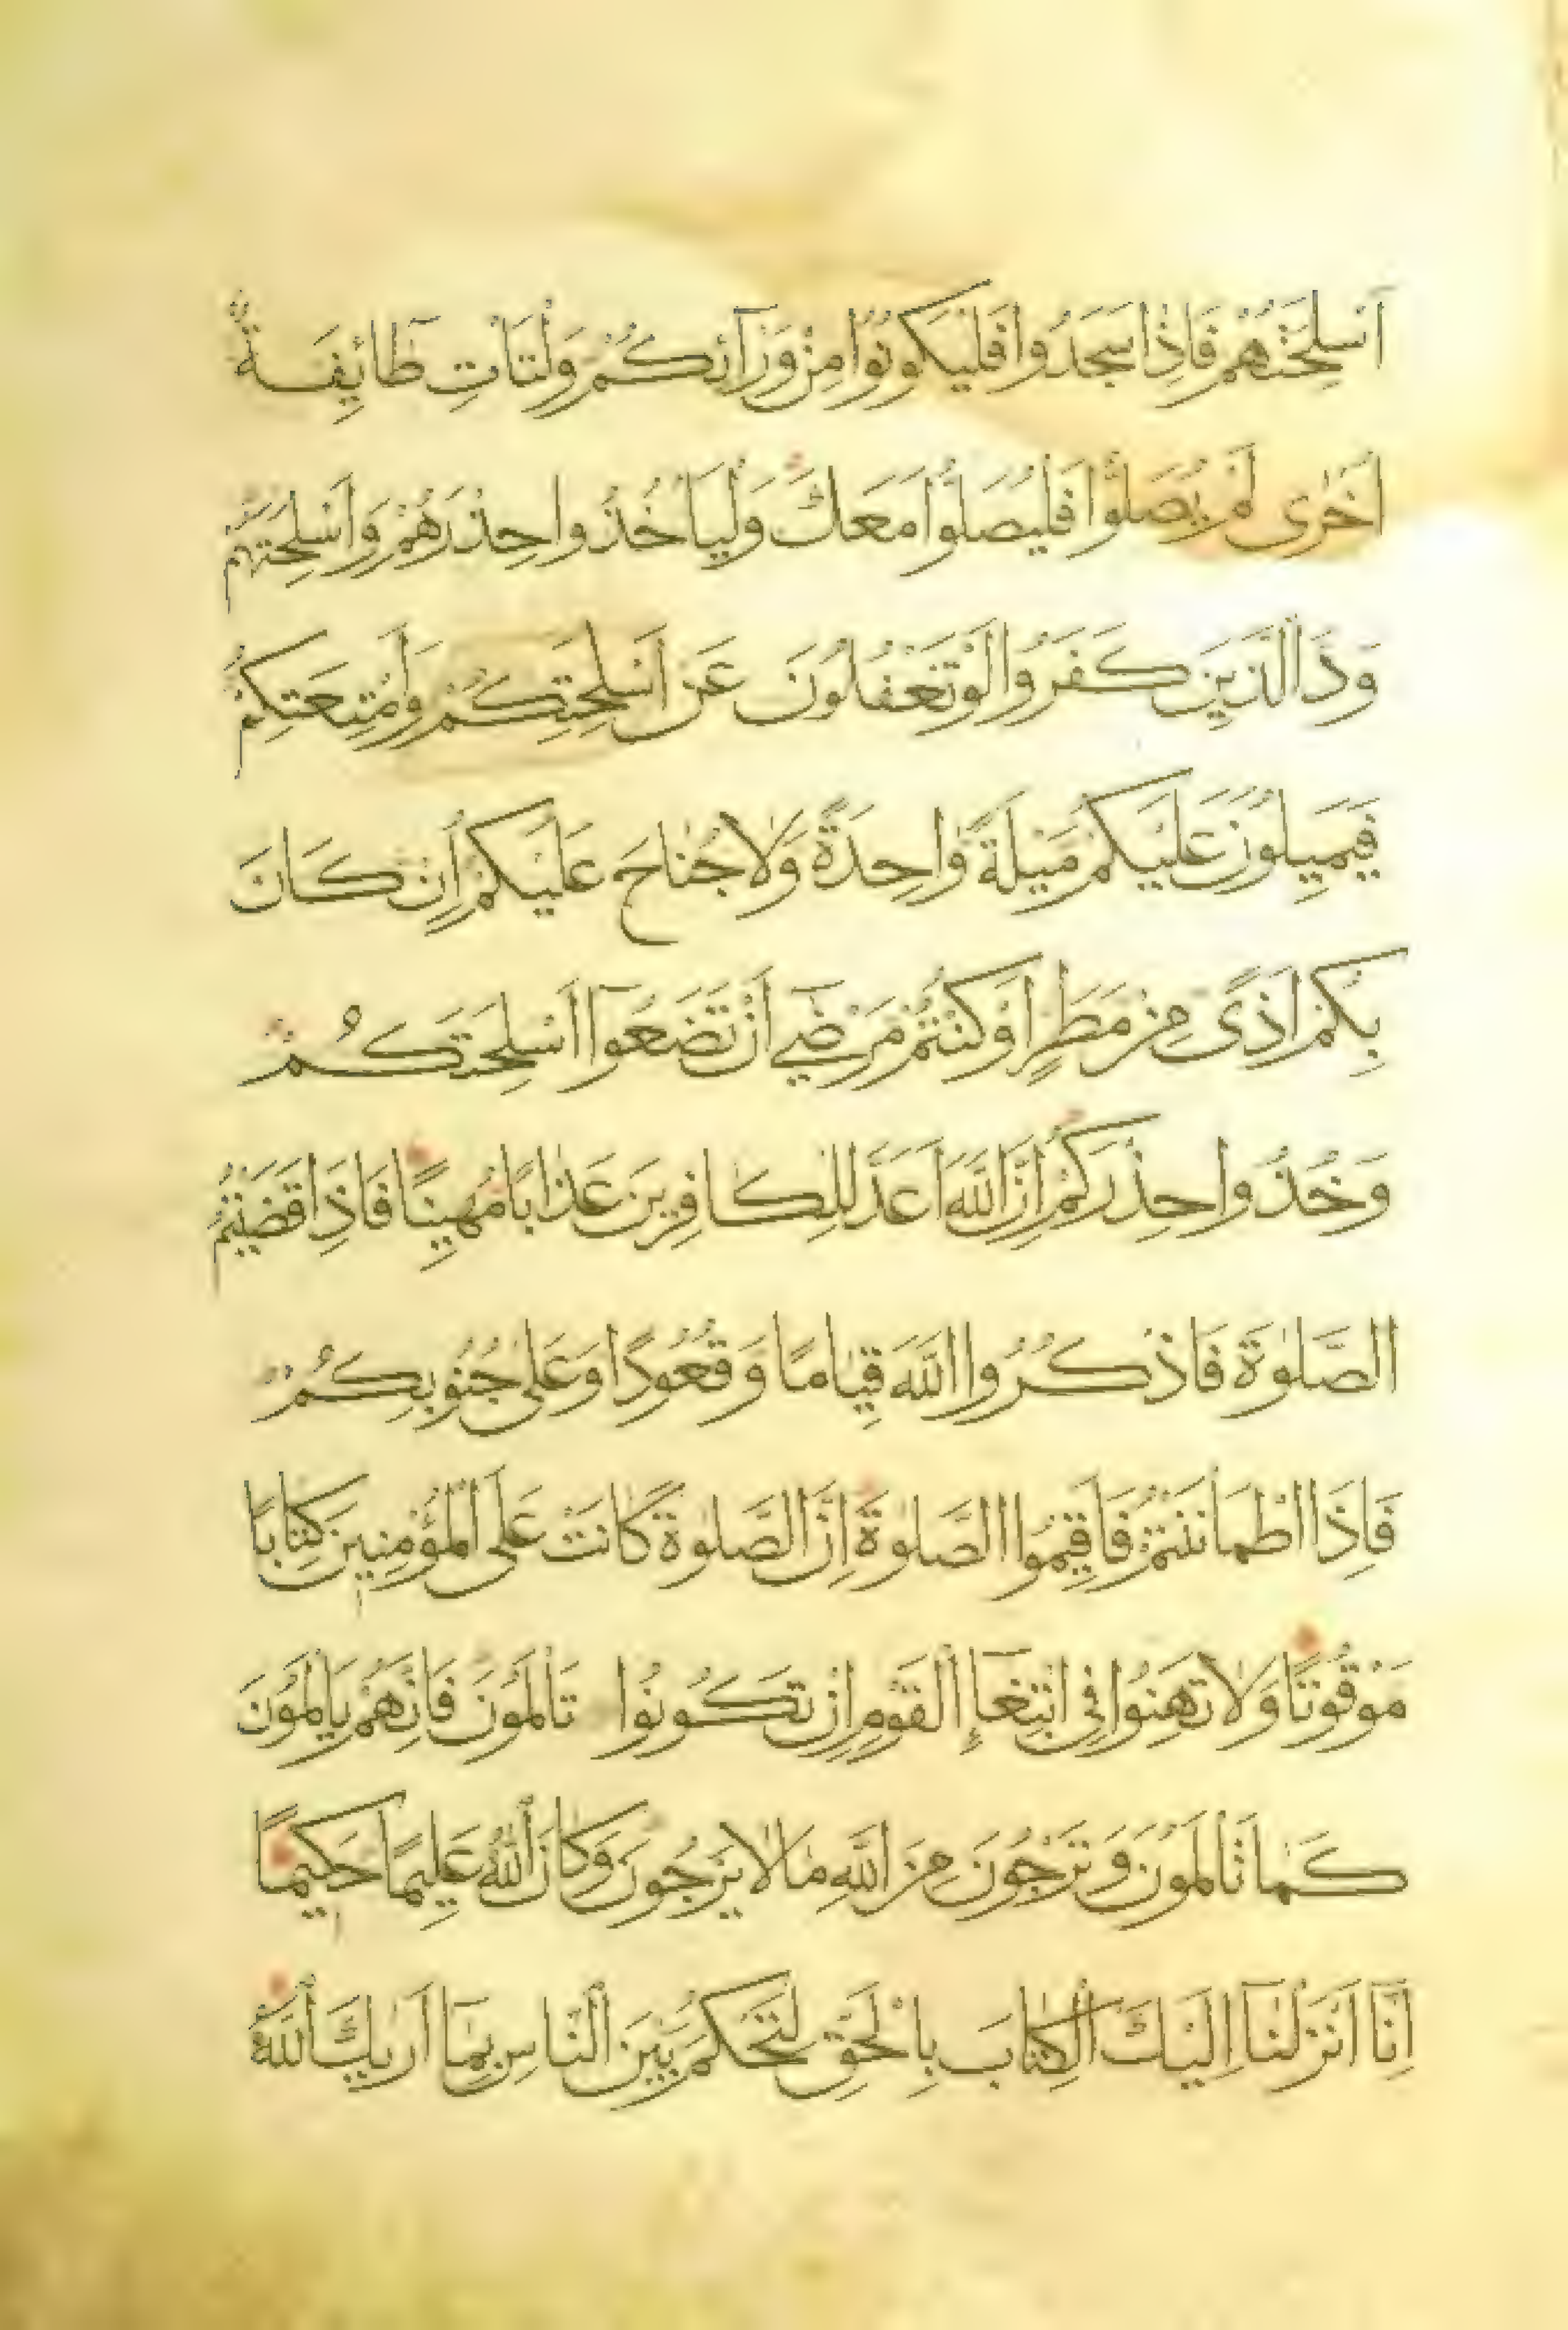 اَسْلِحَتَهُمْ فَاِذَا سَجَدُوا فَلْيَكُونُوا مِنْ وَرَآئِكُمْ وَلْتَاْتِ طَآئِفَةٌ
اُخْرٰى لَمْ يُصَلُّوا فَلْيُصَلُّوا مَعَكَ وَلْيَاْخُذُوا حِذْرَهُمْ وَاَسْلِحَتَهُمْ
وَدَّ الَّذِينَ كَفَرُوا لَوْ تَغْفُلُونَ عَنْ اَسْلِحَتِكُمْ وَاَمْتِعَتِكُمْ
فَيَمِيلُونَ عَلَيْكُمْ مَيْلَةً وَاحِدَةً وَلَا جُنَاحَ عَلَيْكُمْ اِنْ كَانَ
بِكُمْ اَذًى مِنْ مَطَرٍ اَوْ كُنْتُمْ مَرْضٰٓى اَنْ تَضَعُوٓا اَسْلِحَتَكُمْ
وَخُذُوا حِذْرَكُمْ اِنَّ اللّٰهَ اَعَدَّ لِلْكَافِرِينَ عَذَابًا مُهِينًا فَاِذَا قَضَيْتُمُ
الصَّلٰوةَ فَاذْكُرُوا اللّٰهَ قِيَامًا وَقُعُودًا وَعَلٰى جُنُوبِكُمْ
فَاِذَا اطْمَاْنَنْتُمْ فَاَقِيمُوا الصَّلٰوةَ اِنَّ الصَّلٰوةَ كَانَتْ عَلَى الْمُؤْمِنِينَ كِتَابًا
مَوْقُوتًا وَلَا تَهِنُوا فِى ابْتِغَآءِ الْقَوْمِ اِنْ تَكُونُوا تَاْلَمُونَ فَاِنَّهُمْ يَاْلَمُونَ
كَمَا تَاْلَمُونَ وَتَرْجُونَ مِنَ اللّٰهِ مَا لَا يَرْجُونَ وَكَانَ اللّٰهُ عَلِيمًا حَكِيمًا
اِنَّآ اَنْزَلْنَآ اِلَيْكَ الْكِتَابَ بِالْحَقِّ لِتَحْكُمَ بَيْنَ النَّاسِ بِمَآ اَرٰيكَ اللّٰهُ